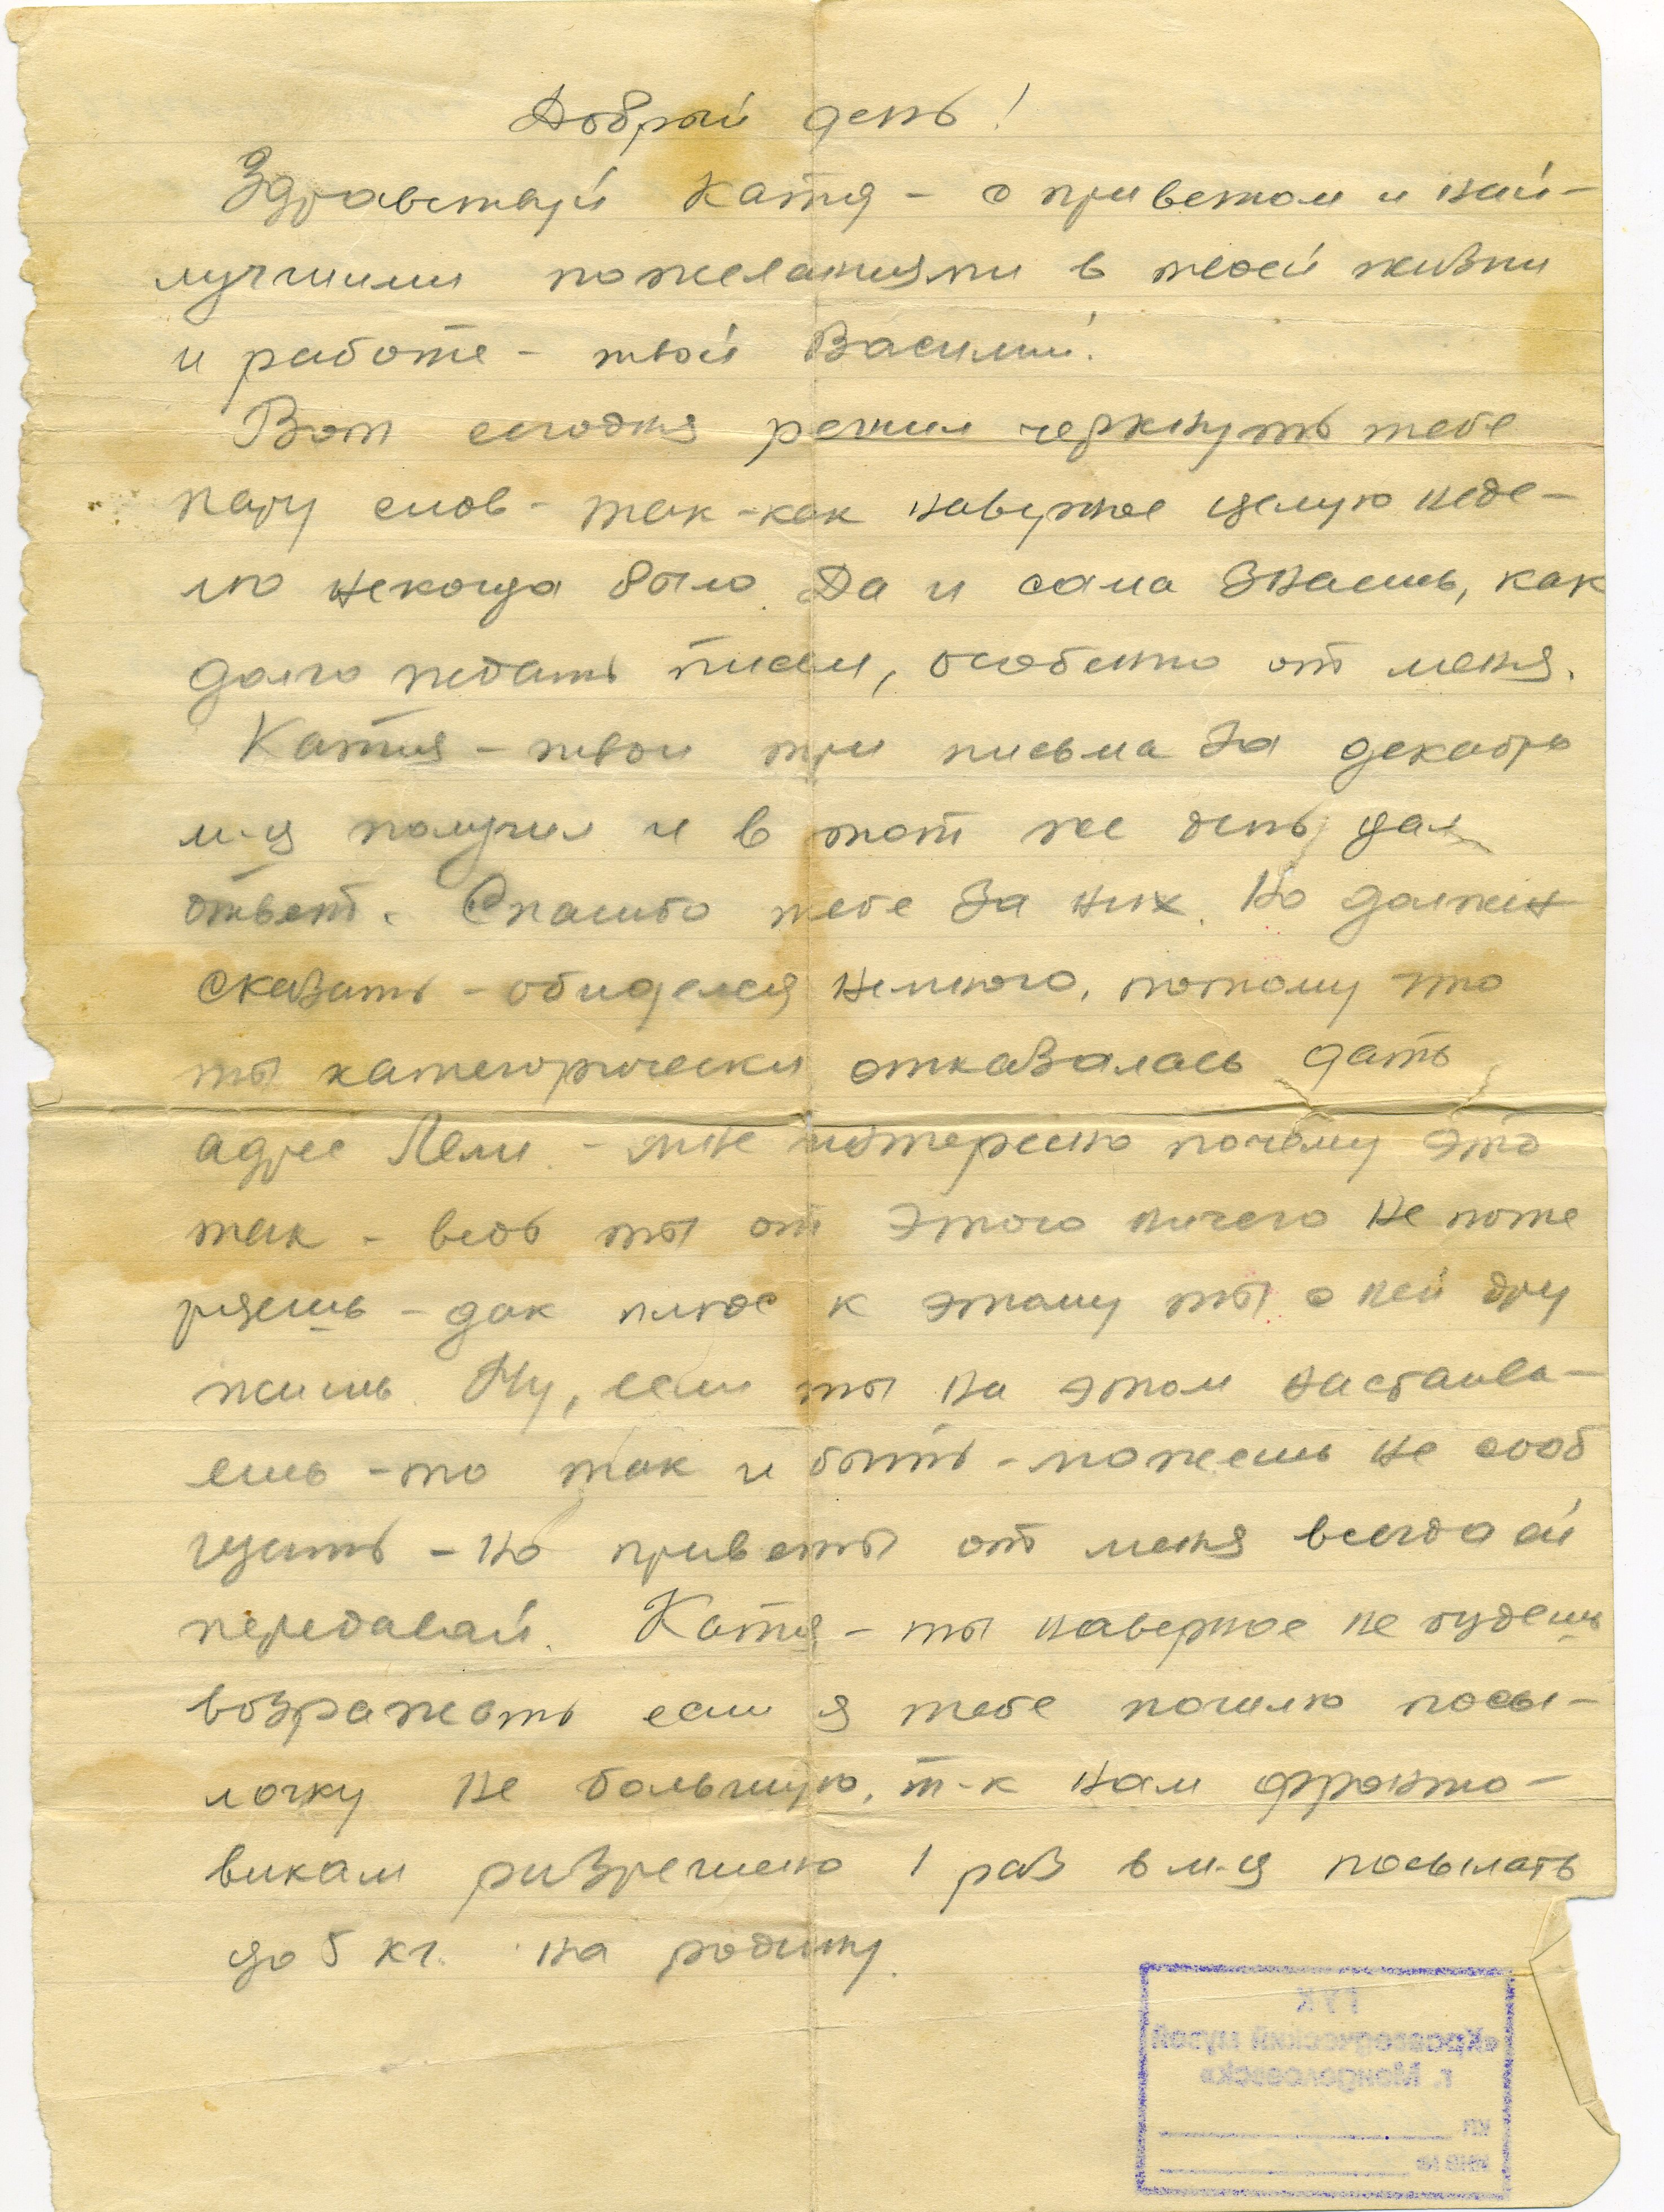 Добрый день!
Здравствуй Катя - с приветом и най-
лучшими пожеланиями в твоей жизни
и работе - твой Василий.
Вот сегодня решил черкнуть тебе
пару слов - так-как наверное целую неде-
лю некогда было. Да и сама знаешь, как
долго ждать писем, особенно от меня.
Катя - твои три письма за декабрь
м-ц получил и в тот же день дал
ответ. Спасибо тебе за них. Но должен
сказать - обиделся немного, потому что
ты категорически отказалась дать
адрес Лели. - мне интересно почему это
так - ведь ты от этого ничего не поте
ряешь - дак плюс к этому ты с ней дру
жишь. Ну, если ты на этом настаива-
ешь - то так и быть - можешь не сооб
щить - но приветы от меня всегда ей
передавай. Катя - ты наверное не будешь
возражать если я тебе пошлю посы-
лочку не большую, т-к нам фронто-
викам разрешено 1 раз в м-ц посылать
до 5 кг. на родину.
ГУК
«Краеведческий музей
г. Менделеевск»
КП
ИНВ №